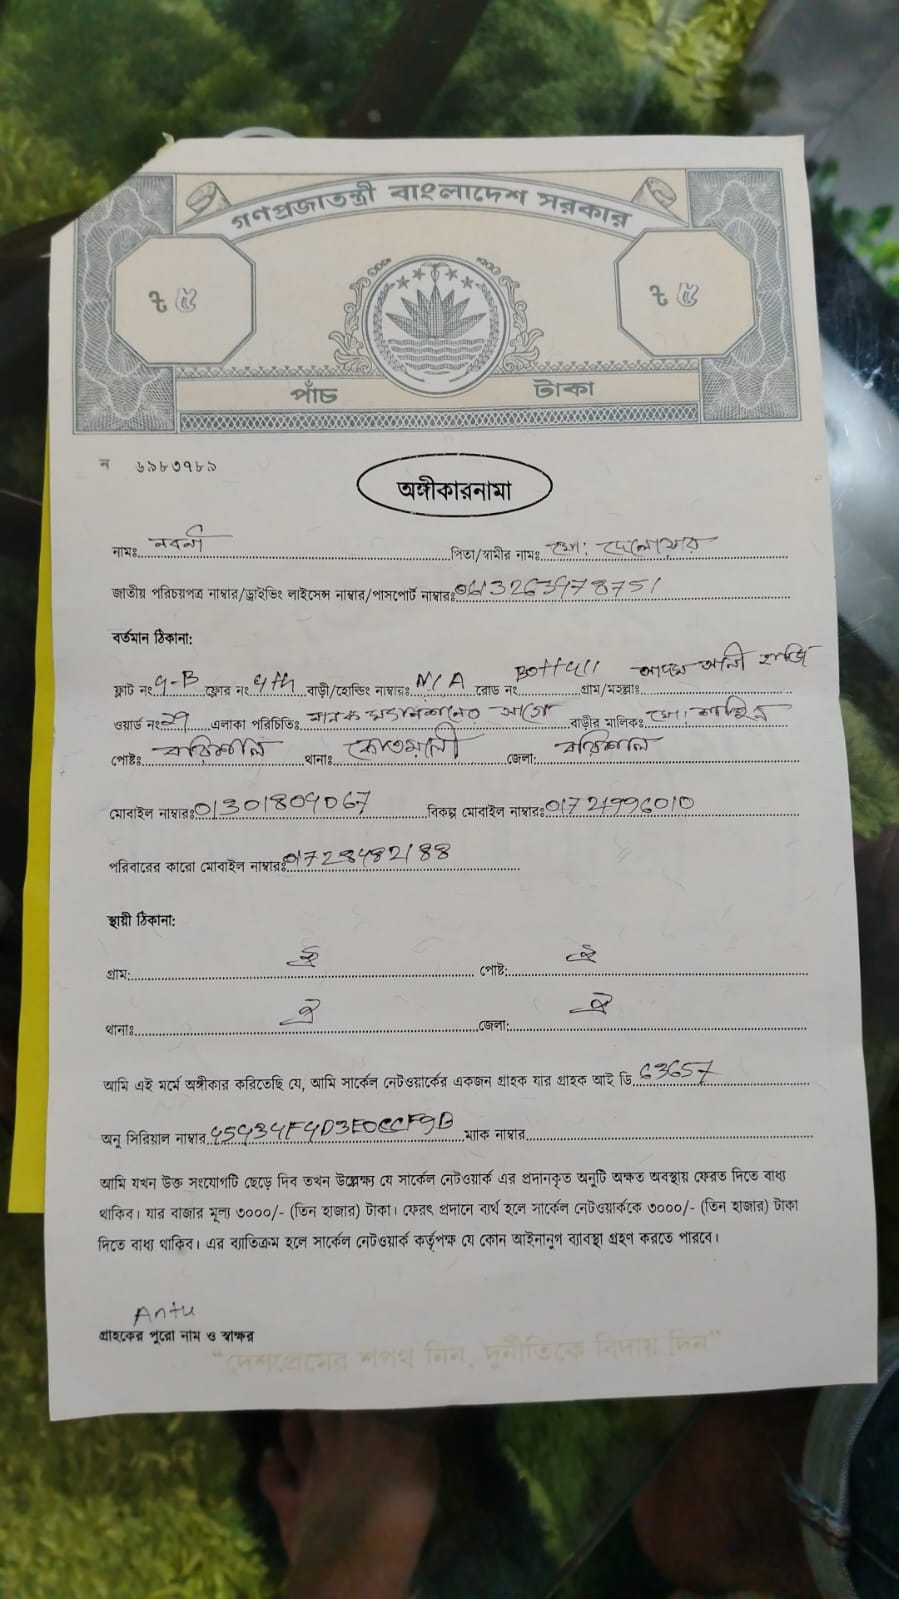 গণপ্রজাতন্ত্রী বাংলাদেশ সরকার
৳ ৫ ৳ ৫
পাঁচ টাকা
ন ৬৯৮৩৭৮৯
অঙ্গীকারনামা
নামঃ নবনী পিতা/স্বামীর নামঃ মো: দেলোয়ার
জাতীয় পরিচয়পত্র নাম্বার/ড্রাইভিং লাইসেন্স নাম্বার/পাসপোর্ট নাম্বারঃ
বর্তমান ঠিকানা:
ফ্লাট নং 4-B ফ্লোর নং 4th বাড়ী/হোল্ডিং নাম্বারঃ N/A রোড নং গ্রাম/মহল্লাঃ
ওয়ার্ড নং 29 এলাকা পরিচিতিঃ বাড়ীর মালিকঃ
পোষ্টঃ বরিশাল থানাঃ কোতয়ালী জেলা: বরিশাল
মোবাইল নাম্বারঃ 01301809067 বিকল্প মোবাইল নাম্বারঃ 01724996010
পরিবারের কারো মোবাইল নাম্বারঃ 01728482188
স্থায়ী ঠিকানা:
গ্রাম: ঐ পোষ্ট: ঐ
থানাঃ ঐ জেলা: ঐ
আমি এই মর্মে অঙ্গীকার করিতেছি যে, আমি সার্কেল নেটওয়ার্কের একজন গ্রাহক যার গ্রাহক আই ডি 63657
অনু সিরিয়াল নাম্বার ম্যাক নাম্বার
আমি যখন উক্ত সংযোগটি ছেড়ে দিব তখন উল্লেক্ষ্য যে সার্কেল নেটওয়ার্ক এর প্রদানকৃত অনুটি অক্ষত অবস্থায় ফেরত দিতে বাধ্য
থাকিব। যার বাজার মূল্য ৩০০০/- (তিন হাজার) টাকা। ফেরৎ প্রদানে ব্যর্থ হলে সার্কেল নেটওয়ার্ককে ৩০০০/- (তিন হাজার) টাকা
দিতে বাধ্য থাকিব। এর ব্যাতিক্রম হলে সার্কেল নেটওয়ার্ক কর্তৃপক্ষ যে কোন আইনানুগ ব্যাবস্থা গ্রহণ করতে পারবে।
Antu
গ্রাহকের পুরো নাম ও স্বাক্ষর
"দেশপ্রেমের শপথ নিন, দুর্নীতিকে বিদায় দিন"